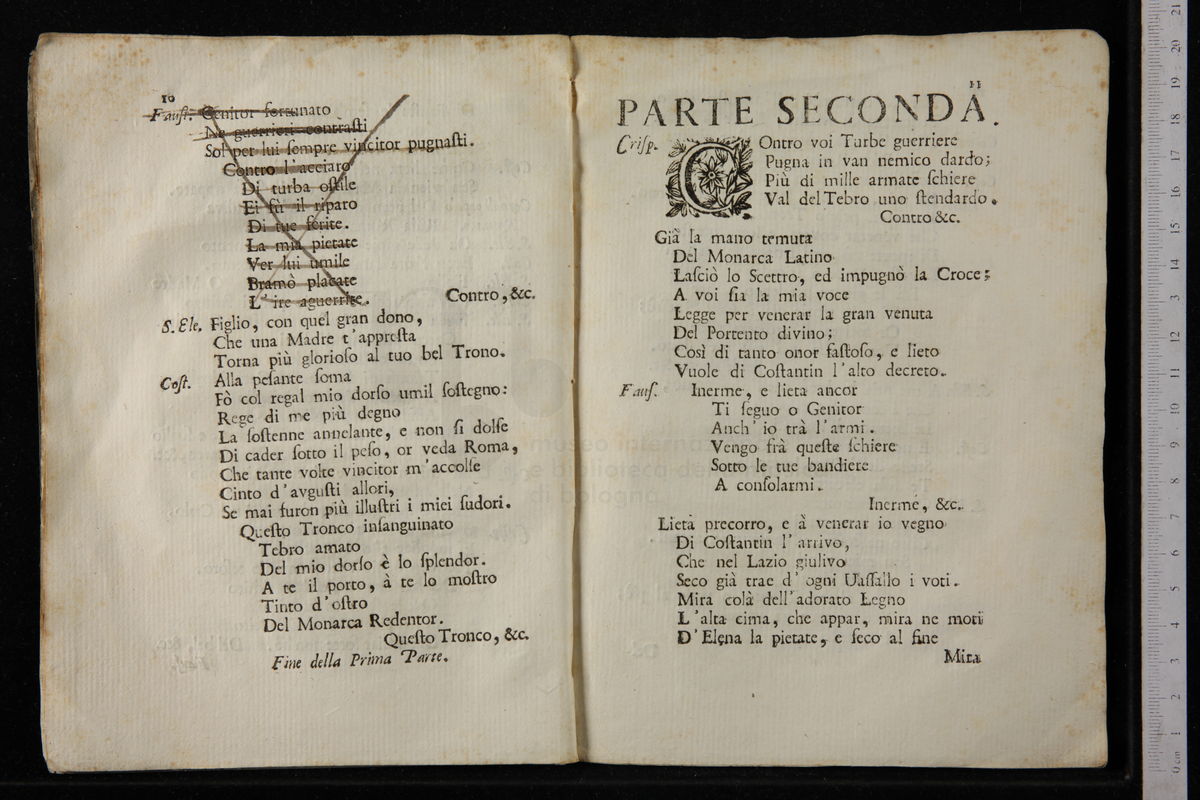 10
Fauſt. Genitor fortunato
Ne guerrieri contraſti
Sol per lui ſempre vincitor pugnaſti.
Contro l'acciaro
Di turba oſtile
Ei fù il riparo
Di tue ferite.
La mia pietate
Ver lui umile
Bramò placate
L' ire aguerrite.
Contro, &c.
S. Ele. Figlio, con quel gran dono,
Che una Madre t'appreſta
Torna più glorioſo al tuo bel Trono.
Coſt. Alla peſante ſoma
Fò col regal mio dorſo umil ſoſtegno:
Rege di me più degno
La ſoſtenne annelante, e non ſi dolſe
Di cader ſotto il peſo, or veda Roma,
Che tante volte vincitor m'accolſe
Cinto d'avguſti allori,
Se mai furon più illuſtri i miei ſudori.
Queſto Tronco inſanguinato
Tebro amato
Del mio dorſo è lo ſplendor.
A te il porto, à te lo moſtro
Tinto d'oſtro
Del Monarca Redentor.
Queſto Tronco, &c.
Fine della Prima Parte.
11
PARTE SECONDA.
Criſp. COntro voi Turbe guerriere
Pugna in van nemico dardo;
Più di mille armate ſchiere
Val del Tebro uno ſtendardo.
Contro &c.
Già la mano temuta
Del Monarca Latino
Laſciò lo Scettro, ed impugnò la Croce;
A voi ſia la mia voce
Legge per venerar la gran venuta
Del Portento divino;
Così di tanto onor faſtoſo, e lieto
Vuole di Coſtantin l'alto decreto.
Fauſ. Inerme, e lieta ancor
Ti ſeguo o Genitor
Anch' io trà l'armi.
Vengo frà queſte ſchiere
Sotto le tue bandiere
A conſolarmi.
Inerme, &c.
Lieta precorro, e à venerar io vegno
Di Coſtantin l' arrivo,
Che nel Lazio giulivo
Seco già trae d' ogni Uaſſallo i voti.
Mira colà dell'adorato Legno
L'alta cima, che appar, mira ne moti
D'Elena la pietate, e ſeco al fine
Mira
museo interna
e biblioteca de
di bologna